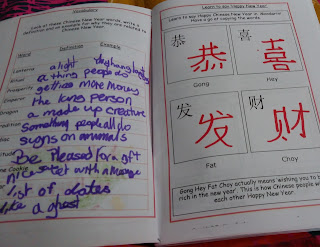 Vocabulary
Look at these Chinese New Year words, write a
definition and an example for why they are related to
Chinese New Year.
Word Definition Example
Lantern a light
Ritual a thing people do
Prosperity getting more money
Emperor the king person
a made up creature
something people all do
signs or animals
Be Pleased for a gift
nice with a message
list of dates
like a ghost
Learn to say 'Happy New Year'
Learn to say Happy Chinese New Year in Mandarin!
Have a go at copying the words.
恭 恭
喜 喜
Gong Hey
发 发
财 财
Fat Choy
Gong Hey Fat Choy actually means wishing you to b
rich in the new year'. This is how Chinese people w
each other Happy New Year.